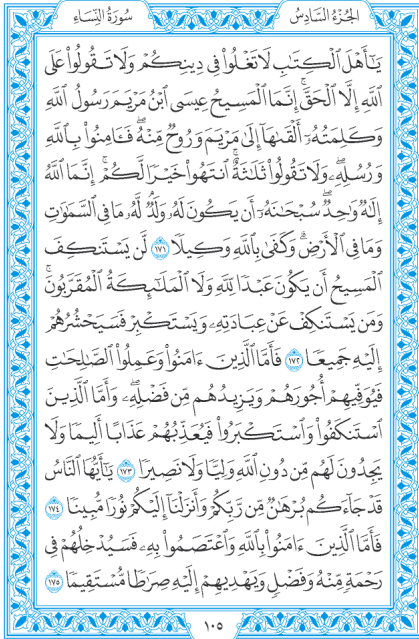 الجُزْءُ السَّادِسُ
سُورَةُ النِّسَاءِ
يَـٰٓأَهْلَ ٱلْكِتَـٰبِ لَا تَغْلُوا۟ فِى دِينِكُمْ وَلَا تَقُولُوا۟ عَلَى
ٱللَّهِ إِلَّا ٱلْحَقَّ ۚ إِنَّمَا ٱلْمَسِيحُ عِيسَى ٱبْنُ مَرْيَمَ رَسُولُ ٱللَّهِ
وَكَلِمَتُهُۥٓ أَلْقَىٰهَآ إِلَىٰ مَرْيَمَ وَرُوحٌ مِّنْهُ ۖ فَـَٔامِنُوا۟ بِٱللَّهِ
وَرُسُلِهِۦ ۖ وَلَا تَقُولُوا۟ ثَلَـٰثَةٌ ۚ ٱنتَهُوا۟ خَيْرًا لَّكُمْ ۚ إِنَّمَا ٱللَّهُ
إِلَـٰهٌ وَٰحِدٌ ۖ سُبْحَـٰنَهُۥٓ أَن يَكُونَ لَهُۥ وَلَدٌ ۘ لَّهُۥ مَا فِى ٱلسَّمَـٰوَٰتِ
وَمَا فِى ٱلْأَرْضِ ۗ وَكَفَىٰ بِٱللَّهِ وَكِيلًا ١٧١ لَّن يَسْتَنكِفَ
ٱلْمَسِيحُ أَن يَكُونَ عَبْدًا لِّلَّهِ وَلَا ٱلْمَلَـٰٓئِكَةُ ٱلْمُقَرَّبُونَ ۚ
وَمَن يَسْتَنكِفْ عَنْ عِبَادَتِهِۦ وَيَسْتَكْبِرْ فَسَيَحْشُرُهُمْ
إِلَيْهِ جَمِيعًا ١٧٢ فَأَمَّا ٱلَّذِينَ ءَامَنُوا۟ وَعَمِلُوا۟ ٱلصَّـٰلِحَـٰتِ
فَيُوَفِّيهِمْ أُجُورَهُمْ وَيَزِيدُهُم مِّن فَضْلِهِۦ ۖ وَأَمَّا ٱلَّذِينَ
ٱسْتَنكَفُوا۟ وَٱسْتَكْبَرُوا۟ فَيُعَذِّبُهُمْ عَذَابًا أَلِيمًا وَلَا
يَجِدُونَ لَهُم مِّن دُونِ ٱللَّهِ وَلِيًّا وَلَا نَصِيرًا ١٧٣ يَـٰٓأَيُّهَا ٱلنَّاسُ
قَدْ جَآءَكُم بُرْهَـٰنٌ مِّن رَّبِّكُمْ وَأَنزَلْنَآ إِلَيْكُمْ نُورًا مُّبِينًا ١٧٤
فَأَمَّا ٱلَّذِينَ ءَامَنُوا۟ بِٱللَّهِ وَٱعْتَصَمُوا۟ بِهِۦ فَسَيُدْخِلُهُمْ فِى
رَحْمَةٍ مِّنْهُ وَفَضْلٍ وَيَهْدِيهِمْ إِلَيْهِ صِرَٰطًا مُّسْتَقِيمًا ١٧٥
١٠٥